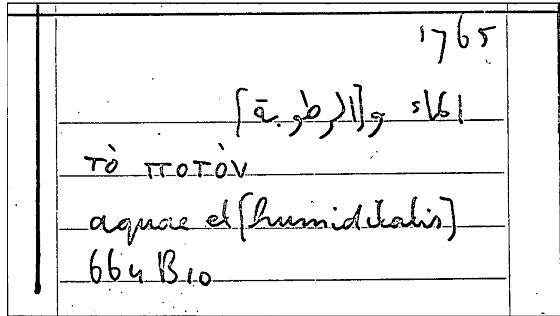 1765
الماء و[الرطوبة]
τὸ ποτὸν
aquae et [humiditatis]
664 B10